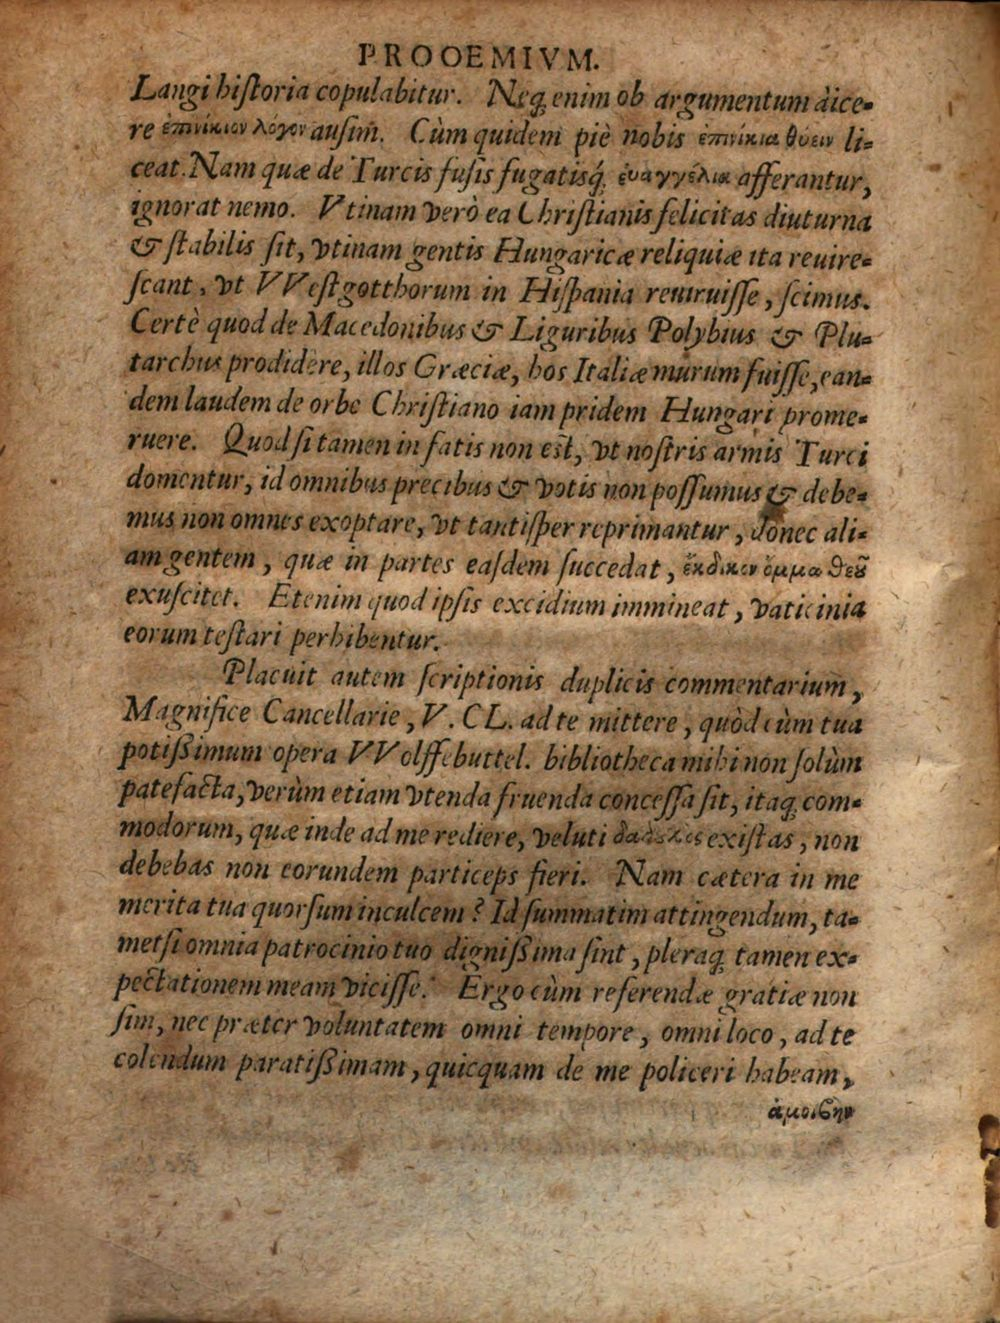 PROOEMIVM.
Langi hiſtoria copulabitur. Neq́; enim ob argumentum dice-
re ἐπινίκιον λόγον auſim. Cùm quidem piè nobis ἐπινίκια θύειν li-
ceat. Nam quæ de Turcis fuſis fugatisq́; ἐυαγγέλια afferantur,
ignorat nemo. Vtinam verò ea Chriſtianis felicitas diuturna
& ſtabilis ſit, vtinam gentis Hungaricæ reliquiæ ita reuire-
ſcant, vt VVeſtgotthorum in Hiſpania reuiruiſſe, ſcimus.
Certè quod de Macedonibus & Liguribus Polybius & Plu-
tarchus prodidere, illos Græciæ, hos Italiæ murum fuiſſe, ean-
dem laudem de orbe Chriſtiano iam pridem Hungari prome-
ruere. Quod ſi tamen in fatis non eſt, vt noſtris armis Turci
domentur, id omnibus precibus & votis non poſſumus & debe-
mus non omnes exoptare, vt tantiſper reprimantur, donec ali-
am gentem, quæ in partes eaſdem ſuccedat, ἔκδικον ὄμμα θεοῦ
exuſcitet. Etenim quod ipſis excidium immineat, vaticinia
eorum teſtari perhibentur.
Placuit autem ſcriptionis duplicis commentarium,
Magnifice Cancellarie, V. CL. ad te mittere, quòd cùm tua
potiſsimum opera VVolffebuttel. bibliotheca mihi non ſolùm
patefacta, verùm etiam vtenda fruenda conceſſa ſit, itaq́; com-
modorum, quæ inde ad me rediere, veluti exiſtas, non
debebas non eorundem particeps fieri. Nam cætera in me
merita tua quorſum inculcem? Id ſummatim attingendum, ta-
metſi omnia patrocinio tuo digniſsima ſint, pleraq́; tamen ex-
pectationem meam viciſſe. Ergo cùm referendæ gratiæ non
ſim, nec præter voluntatem omni tempore, omni loco, ad te
colendum paratiſsimam, quicquam de me policeri habeam,
ἀμοιβὴν